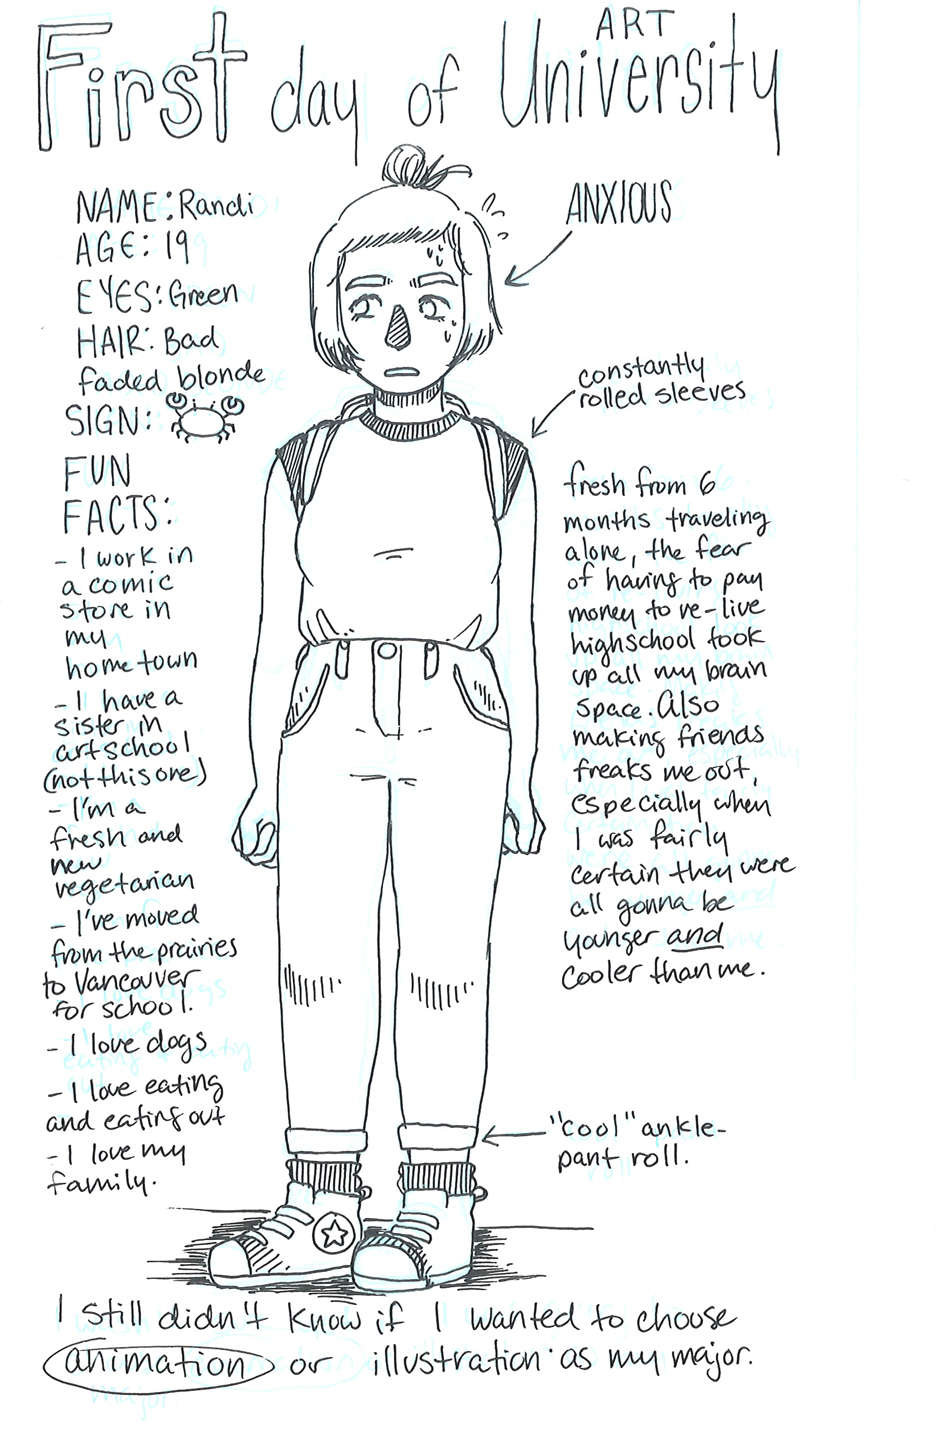 ART
First day of University
NAME: Randi
AGE: 19
EYES: Green
HAIR: Bad
faded blonde
SIGN:
FUN
FACTS:
- I work in
a comic
store in
my
hometown
- I have a
sister in
art school
(not this one)
- I'm a
fresh and
new
vegetarian
- I've moved
from the prairies
to Vancouver
for school.
- I love dogs
- I love eating
and eating out
- I love my
family.
ANXIOUS
constantly
rolled sleeves
fresh from 6
months traveling
alone, the fear
of having to pay
money to re-live
highschool took
up all my brain
space. Also
making friends
freaks me out,
especially when
I was fairly
certain they were
all gonna be
younger and
cooler than me.
"cool" ankle-
pant roll.
I still didn't know if I wanted to choose
animation or illustration as my major.